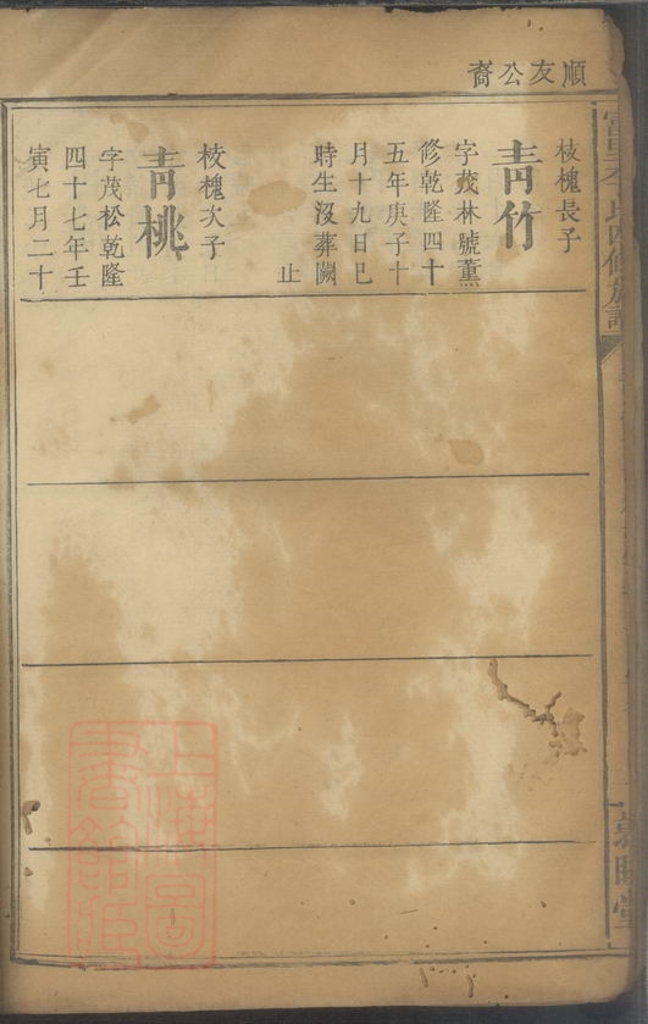 順友公裔
枝槐長子
青竹
字茂林號薰
修乾隆四十
五年庚子十
月十九日巳
時生沒葬闕
止
枝槐次子
青桃
字茂松乾隆
四十七年壬
寅七月二十
上海圖
書館藏